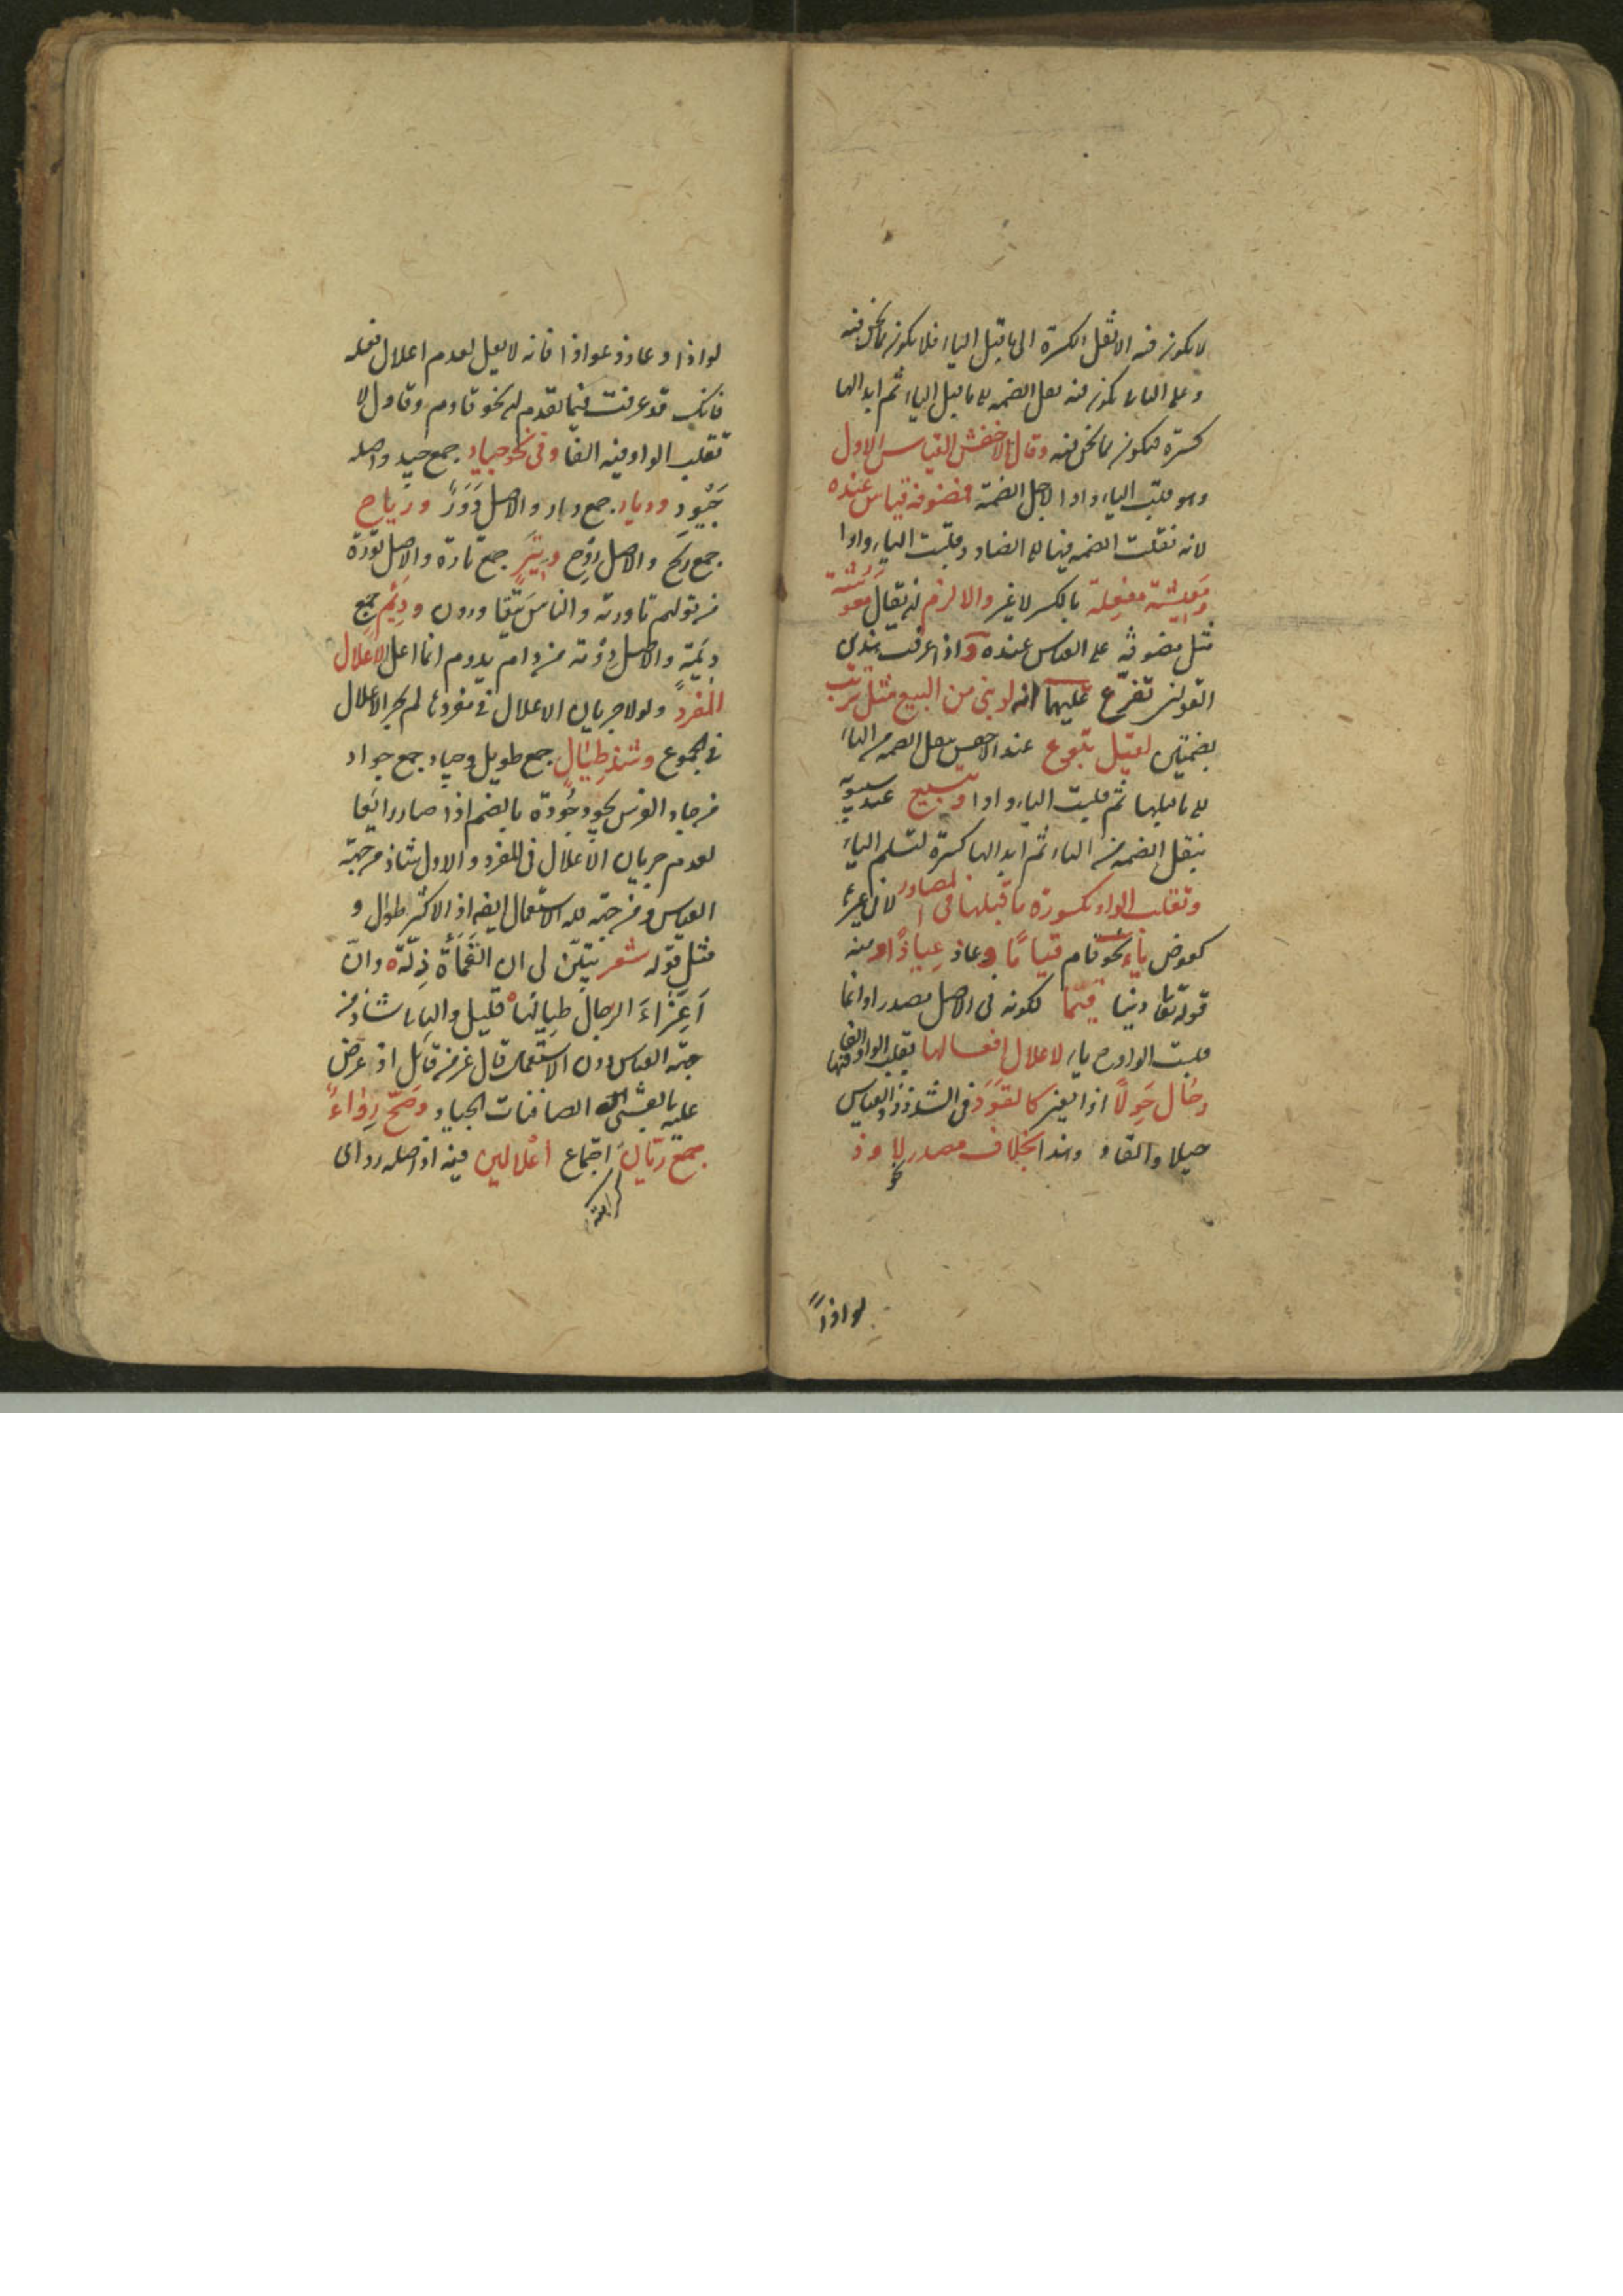 لا يكون فيه الا نقل الكسرة الى ما قبل الياء فلا يكون مما نحن فيه
وعلى الثانى يكون فيه نقل الضمه الى ما قبل الياء ثم ابدالها
كسرة فيكون مما نحن فيه وقال الاخفش القياس الاول
وهو قلب الياء واوا لاجل الضمة فمضوفة قياس عنده
لانه نقلت الضمه فيها الى الضاد وقلبت الياء واوا
ومعيشة مفعلة بالكسر لا غير والا لزم ان يقال معوشة
مثل مضوفة على القياس عنده واذا عرفت هذين
القولين تفرع عليهما انه لو بنى من البيع مثل ترتب
بضمتين لقيل تبوع عند الاخفش بنقل الضمه من الياء
الى ما قبلها ثم قلبت الياء واوا وتبيع عند سيبويه
بنقل الضمه من الياء ثم ابدالها كسرة لتسلم الياء
وتقلب الواو مكسورة ما قبلها فى المصادر لا فى غيره
كعوض ياء نحو قام قياما وعاذ عياذا ومنه
قوله تعا دينا قيما لكونه فى الاصل مصدرا وانما
قلبت الواو ح ياء لاعلال افعالها بقلب الواو فيها الفا
وحال حولا اذا تغير كالقود فى الشذوذ والقياس
حيلا والقاد وهذا بخلاف مصدر نحو لاوذ
لواذا
لواذا وعاوذ عواذا فانه لا يعل لعدم اعلال فعله
فانك قد عرفت فيما تقدم ان نحو قاوم وقاول لا
تقلب الواو فيه الفا وفى نحو جياد جمع جيد واصله
جيود وديار جمع دار والاصل دور ورياح
جمع ريح والاصل روح وتير جمع تارة والاصل تورة
من قولهم تاورته والناس يتقاورون وديم جمع
ديمة والاصل دومة من دام يدوم انما اعل لاعلال
المفرد ولولا جريان الاعلال فى مفردها لم يجر الاعلال
فى الجموع وشذ طيال جمع طويل وجياد جمع جواد
من جاد الفرس يجود جودة بالضم اذا صار رائعا
لعدم جريان الاعلال فى المفرد والاول شاذ من جهة
القياس ومن جهة قلة الاستعمال ايضا اذ الاكثر طوال و
مثل قوله شعر تبين لى ان القماءة ذلة وان
اعزاء الرجال طيالها قليل والثانى شاذ من
جهة القياس دون الاستعمال قال عز من قائل اذ عرض
عليه بالعشى الصافنات الجياد وصح رواء
جمع ريان كراهة اجتماع اعلالين فيه اذ اصله رواى